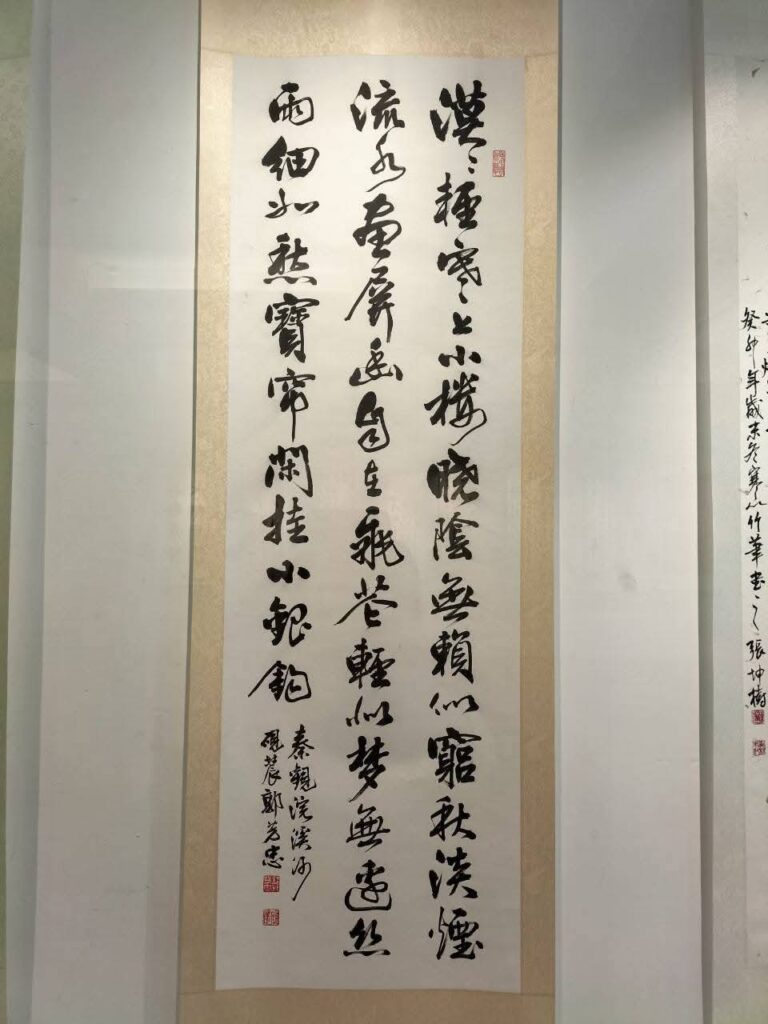 漠〻輕寒上小樓曉陰無賴似窮秋淡煙
流水畫屏幽自在飛花輕似夢無邊絲
雨細如愁寶帘閑挂小銀鉤
秦觀浣溪沙
硯農郭芳忠
癸卯年歲末冬寒竹華書之張坤樹